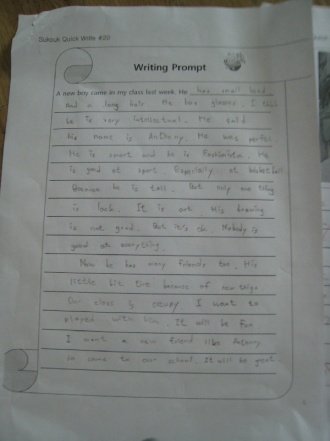 Subsuk Quick Write #20
Writing Prompt
A new boy came in my class last week. He has small head
And a long hair. He has glasses. I think
he is very intellectual. He told
his name is Anthony. He was perfect.
He is smart and he is Fashionista. He
is good at sport. Especially at basketball
Because he is tall. But only one thing
is lack. It is art. His drawing
is not good. But it's ok. Nobody is
good at everything.
Now he has many friends too. His
little bit tire because of new things
Our class is crazy I want to
played with him. It will be fun
I want a new friend like Antony
to come to our school. It will be great.